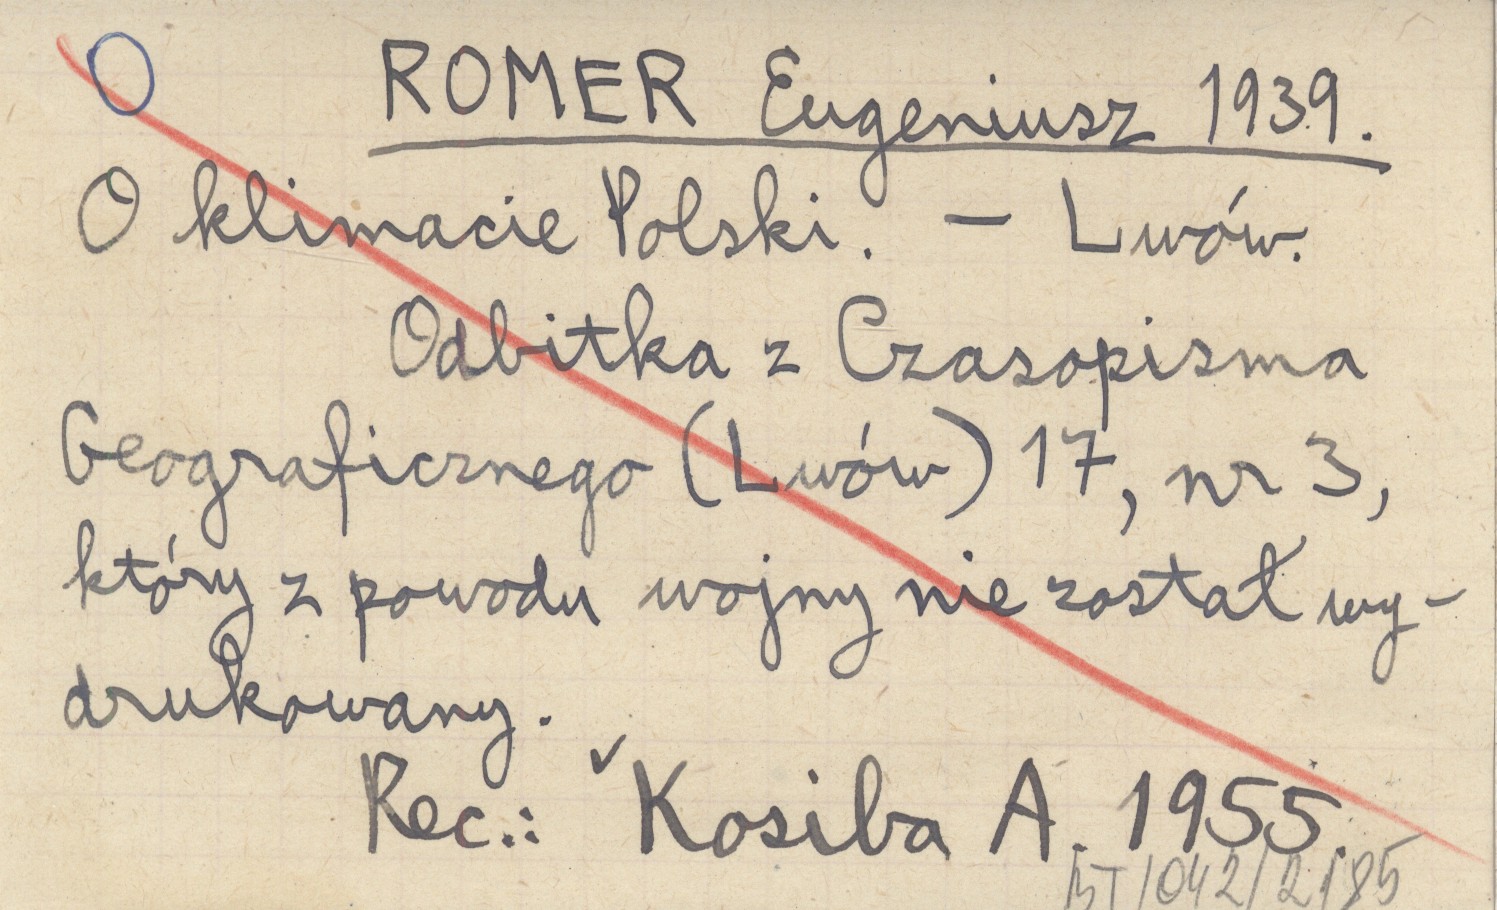 ROMER Eugeniusz 1939.
O klimacie Polski. — Lwów.
Odbitka z Czasopisma
Geograficznego (Lwów) 17, nr 3,
który z powodu wojny nie został wy-
drukowany.
Rec.: Kosiba A. 1955.
/042/2/85